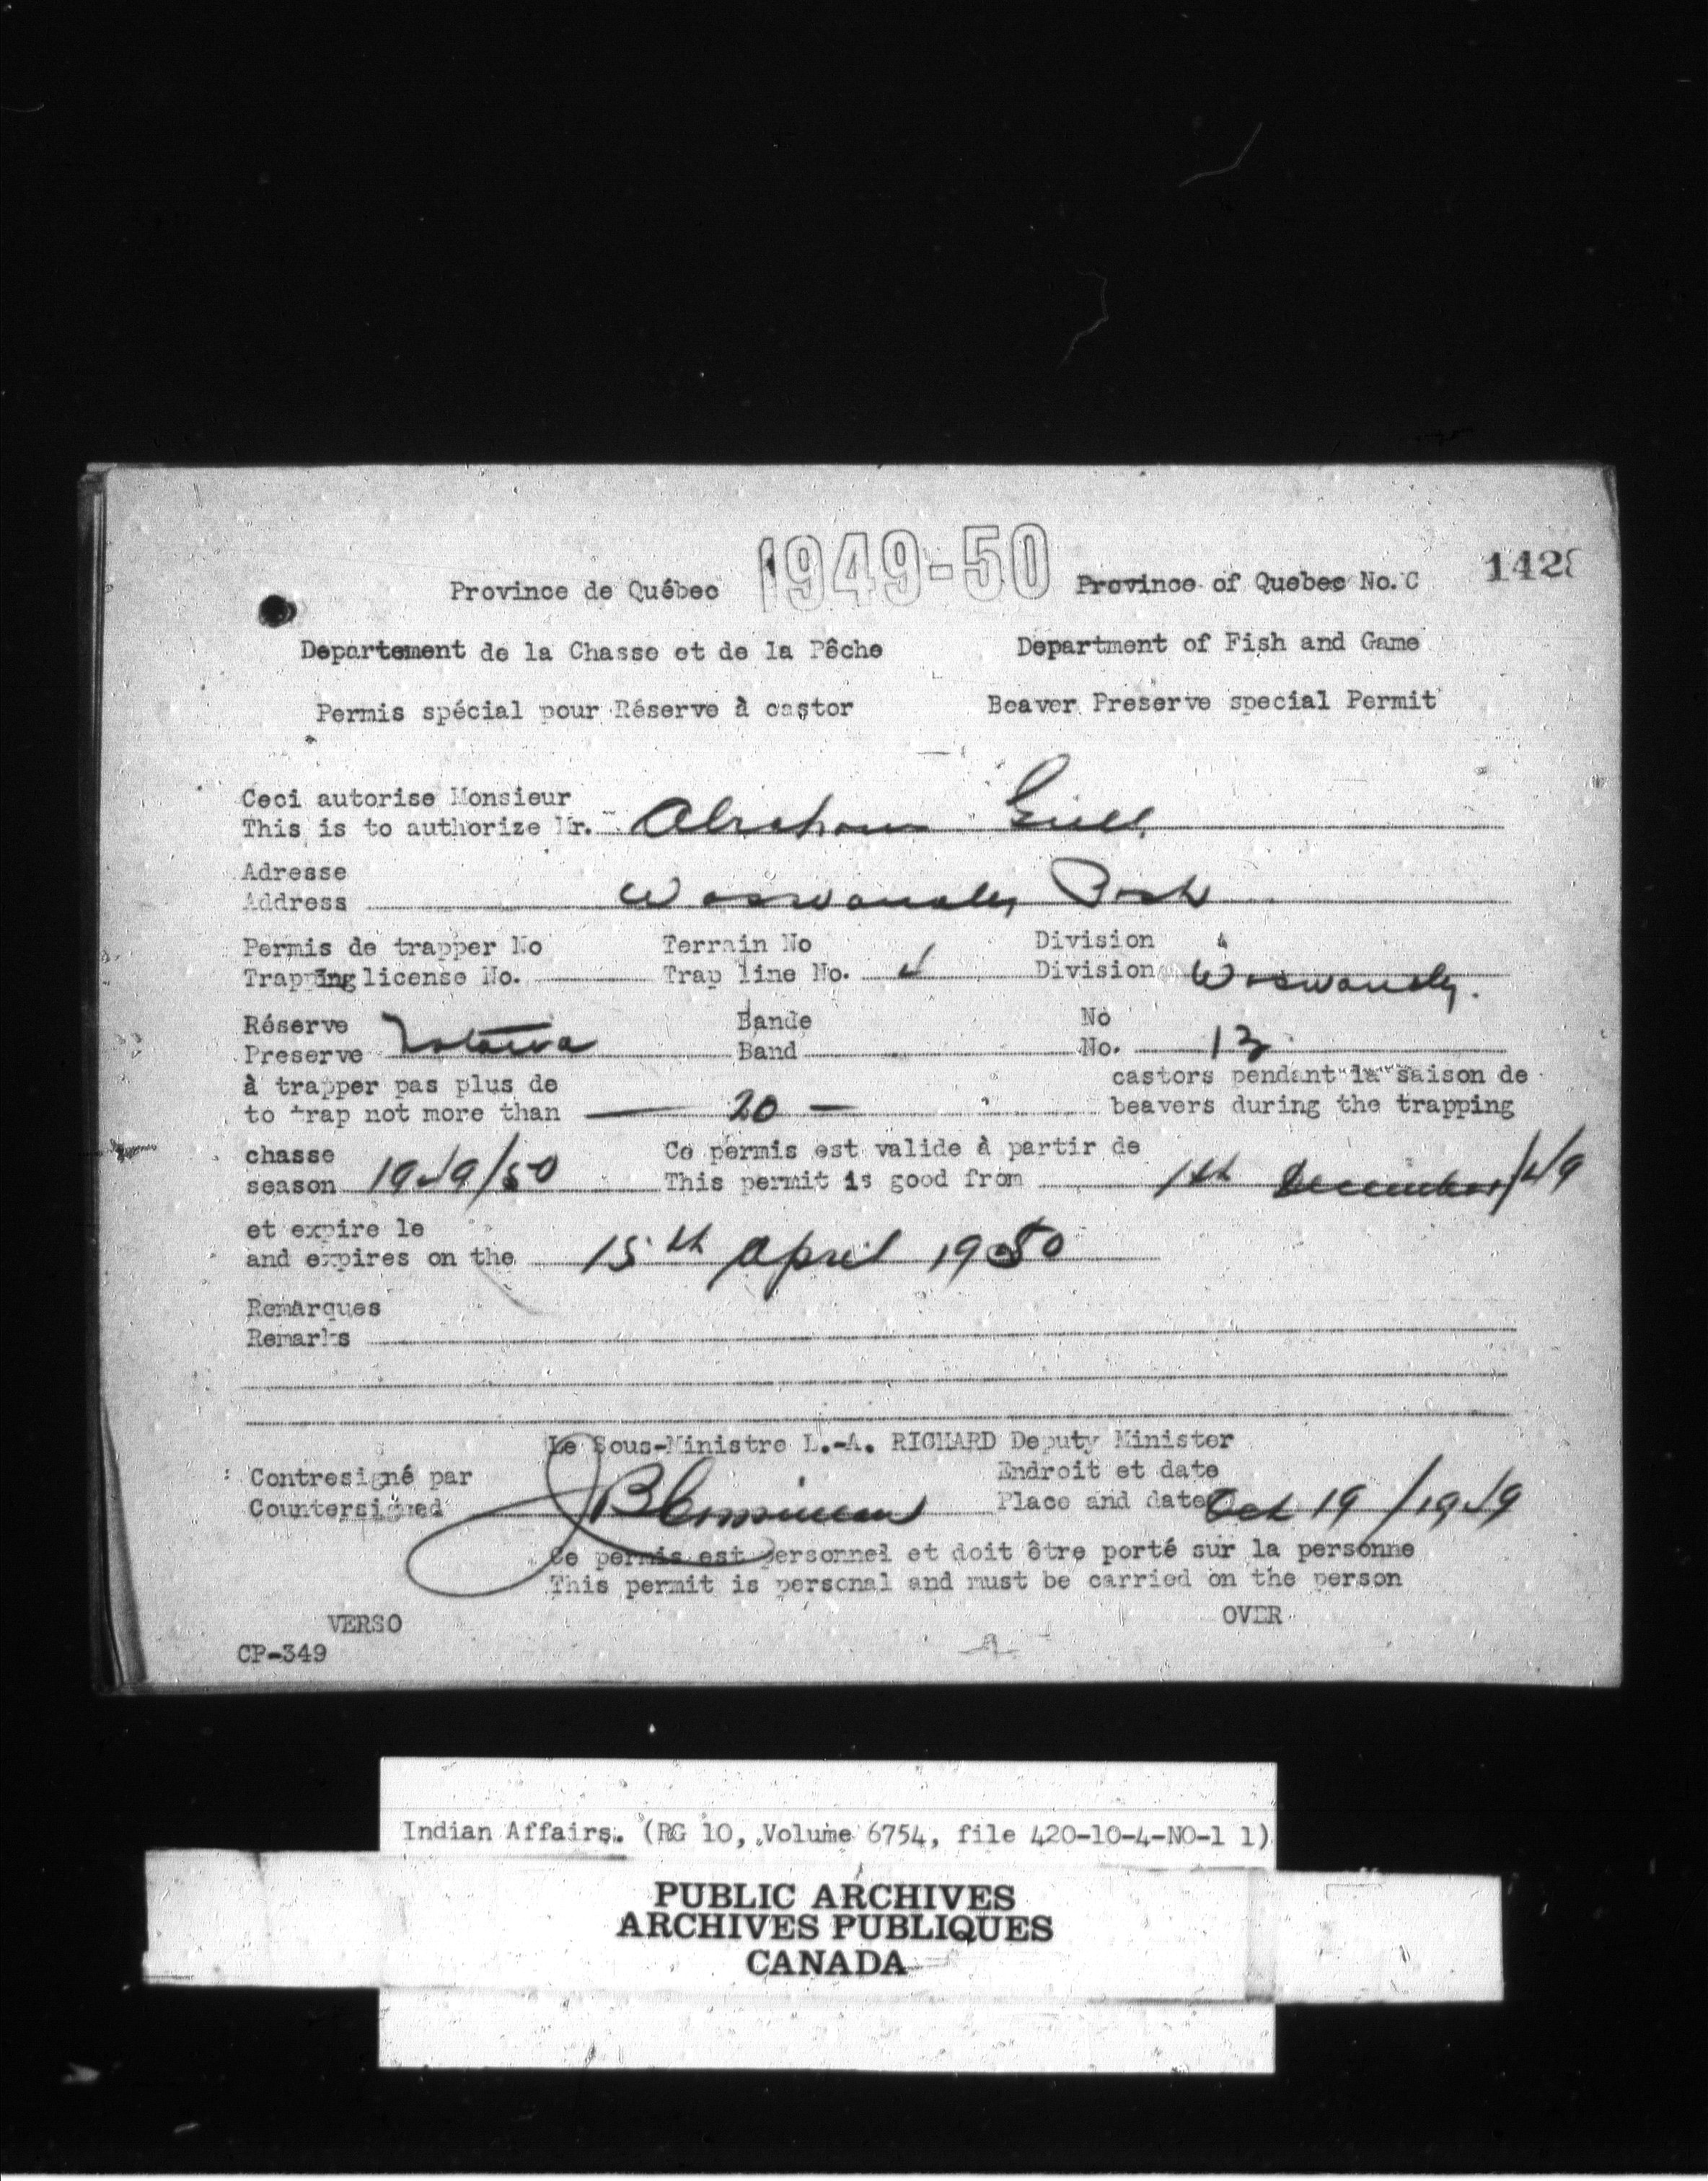 1949-50
Province de Québec Province of Quebec No. C 1428
Departement de la Chasse et de la Pêche Department of Fish and Game
Permis spécial pour Réserve à castor Beaver Preserve special Permit
Ceci autorise Monsieur
This is to authorize Mr. Abraham Gull
Adresse
Address Waswanaby Post
Permis de trapper No Terrain No Division
Trapping license No. Trap line No. 4 Division Waswanaby.
Réserve Bande No
Preserve Nottawa Band No. 13
à trapper pas plus de castors pendant la saison de
to trap not more than — 20 — beavers during the trapping
chasse Ce permis est valide à partir de
season 1949/50 This permit is good from 1th December/49
et expire le
and expires on the 15th April 1950
Remarques
Remarks
Le Sous-Ministre L.-A. RICHARD Deputy Minister
Contresigné par Endroit et date
Countersigned Place and date Oct 19/1949
Ce permis est personnel et doit être porté sur la personne
This permit is personal and must be carried on the person
VERSO OVER
CP-349
Indian Affairs. (RG 10, Volume 6754, file 420-10-4-NO-1 1)
PUBLIC ARCHIVES
ARCHIVES PUBLIQUES
CANADA